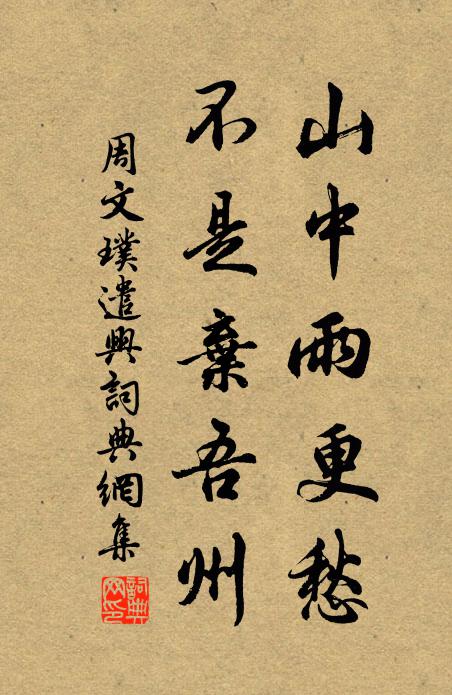 山中雨更愁
不是棄吾州
周文璞遣興詞典網集
詞典网印